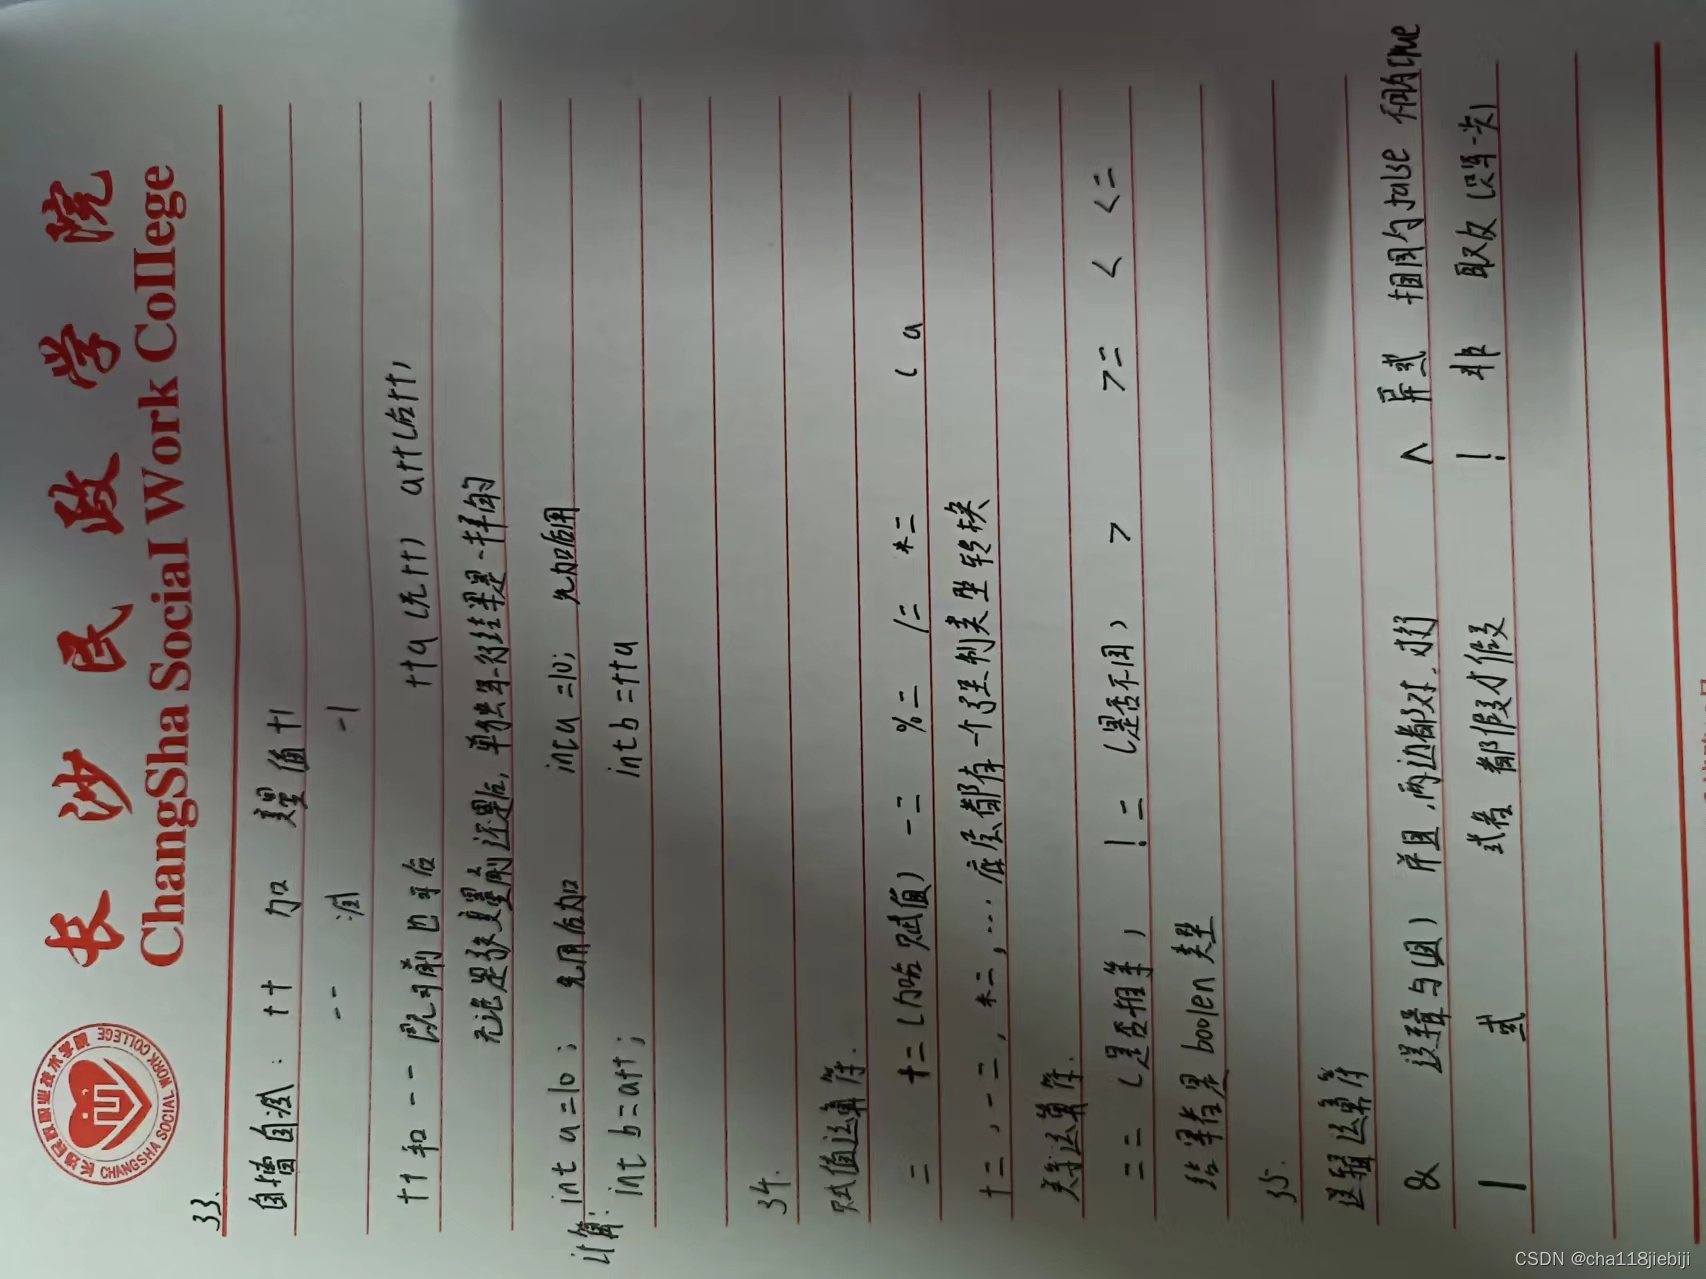 长沙民政学院
ChangSha Social Work College
CHANGSHA SOCIAL WORK COLLEGE
33.
自增自减: ++ 加 变量值+1
-- 减 -1
++ 和 -- 既可前也可后 ++a (先++) a++(后++)
无论是放变量前还是后,单独写一行结果是一样的
计算: int a =10; 先用后加 int a =10; 先加后用
int b =a++; int b =++a
34.
赋值运算符.
= += (加后赋值) -= %= /= *= ( a
+=, -=, *=, .... 底层都有一个强制类型转换
关系运算符.
== (是否相等) != (是否不同) > >= < <=
结果都是 boolen 类型
35.
逻辑运算符
& 逻辑与(且) 并且,两边都对.才行 ^ 异或 相同为false 不同为true
| 或 或者 都假才假 ! 非 取反 (只写一次)
CSDN @cha118jiebiji